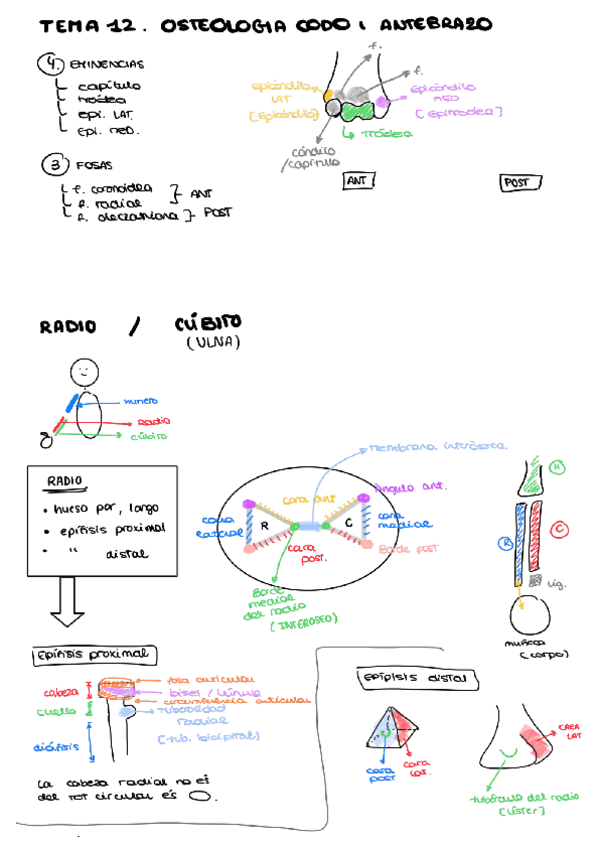 TEMA 12. OSTEOLOGIA CODO I ANTEBRAZO
4. EMINENCIAS
capítulo
tróclea
epi. LAT.
Epi. MED.
3 FOSAS
f. coronoidea
f. radial
} ANT
f. olecraniana } POST
f.
f.
epicóndilo
LAT
[Epicóndilo]
Epicóndilo
MED
[Epitroclea]
Tróclea
cóndilo
/capítulo
ANT
POST
RADIO / CÚBITO
(ULNA)
humero
Radio
cúbito
RADIO
• hueso par, largo
• epífisis proximal
• " distal
Membrana interósea.
Ángulo ant.
cara ant
cara
lateral
R
C
cara
medial
cara
post.
Borde post
Borde
medial
del radio
(INTEROSEO)
H
R
C
lig.
muñeca
(carpo)
Epífisis proximal
cabeza
cuello
diáfisis
fosa articular
bisel / lúnula
circumferencia articular
tuberosidad
radial
[tub. bicipital]
La cabeza radial no és
del TOT circular és
Epífisis distal
cara
post
cara
LAT.
CARA
LAT
tubérculo del radio
[Lister]